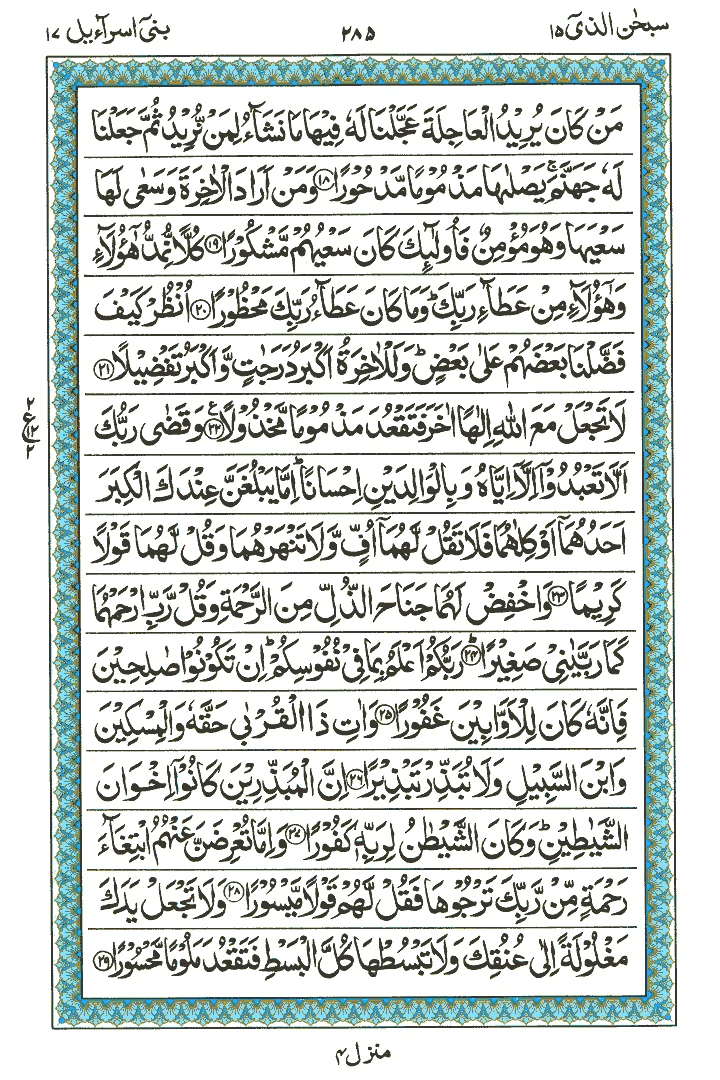 سبحٰن الذیٓ ۱۵
۲۸۵
بنیٓ اسرآءیل ۱۷
مَنْ كَانَ يُرِيْدُ الْعَاجِلَةَ عَجَّلْنَا لَهٗ فِيْهَا مَا نَشَآءُ لِمَنْ نُّرِيْدُ ثُمَّ جَعَلْنَا
لَهٗ جَهَنَّمَ ۚ يَصْلٰىهَا مَذْمُوْمًا مَّدْحُوْرًا ﴿۱۸﴾ وَمَنْ اَرَادَ الْاٰخِرَةَ وَسَعٰى لَهَا
سَعْيَهَا وَهُوَ مُؤْمِنٌ فَاُولٰٓئِكَ كَانَ سَعْيُهُمْ مَّشْكُوْرًا ﴿۱۹﴾ كُلًّا نُّمِدُّ هٰٓؤُلَآءِ
وَهٰٓؤُلَآءِ مِنْ عَطَآءِ رَبِّكَ ؕ وَمَا كَانَ عَطَآءُ رَبِّكَ مَحْظُوْرًا ﴿۲۰﴾ اُنْظُرْ كَيْفَ
فَضَّلْنَا بَعْضَهُمْ عَلٰى بَعْضٍ ؕ وَلَلْاٰخِرَةُ اَكْبَرُ دَرَجٰتٍ وَّاَكْبَرُ تَفْضِيْلًا ﴿۲۱﴾
لَا تَجْعَلْ مَعَ اللّٰهِ اِلٰهًا اٰخَرَ فَتَقْعُدَ مَذْمُوْمًا مَّخْذُوْلًا ﴿۲۲﴾ ع وَقَضٰى رَبُّكَ
۲ ع ۱۲ ۲
اَلَّا تَعْبُدُوْۤا اِلَّاۤ اِيَّاهُ وَبِالْوَالِدَيْنِ اِحْسَانًا ؕ اِمَّا يَبْلُغَنَّ عِنْدَكَ الْكِبَرَ
اَحَدُهُمَاۤ اَوْ كِلٰهُمَا فَلَا تَقُلْ لَّهُمَاۤ اُفٍّ وَّلَا تَنْهَرْهُمَا وَقُلْ لَّهُمَا قَوْلًا
كَرِيْمًا ﴿۲۳﴾ وَاخْفِضْ لَهُمَا جَنَاحَ الذُّلِّ مِنَ الرَّحْمَةِ وَقُلْ رَّبِّ ارْحَمْهُمَا
كَمَا رَبَّيٰنِيْ صَغِيْرًا ﴿۲۴﴾ ؕ رَبُّكُمْ اَعْلَمُ بِمَا فِيْ نُفُوْسِكُمْ ؕ اِنْ تَكُوْنُوْا صٰلِحِيْنَ
فَاِنَّهٗ كَانَ لِلْاَوَّابِيْنَ غَفُوْرًا ﴿۲۵﴾ وَاٰتِ ذَا الْقُرْبٰى حَقَّهٗ وَالْمِسْكِيْنَ
وَابْنَ السَّبِيْلِ وَلَا تُبَذِّرْ تَبْذِيْرًا ﴿۲۶﴾ اِنَّ الْمُبَذِّرِيْنَ كَانُوْۤا اِخْوَانَ
الشَّيٰطِيْنِ ؕ وَكَانَ الشَّيْطٰنُ لِرَبِّهٖ كَفُوْرًا ﴿۲۷﴾ وَاِمَّا تُعْرِضَنَّ عَنْهُمُ ابْتِغَآءَ
رَحْمَةٍ مِّنْ رَّبِّكَ تَرْجُوْهَا فَقُلْ لَّهُمْ قَوْلًا مَّيْسُوْرًا ﴿۲۸﴾ وَلَا تَجْعَلْ يَدَكَ
مَغْلُوْلَةً اِلٰى عُنُقِكَ وَلَا تَبْسُطْهَا كُلَّ الْبَسْطِ فَتَقْعُدَ مَلُوْمًا مَّحْسُوْرًا ﴿۲۹﴾
منزل ۴